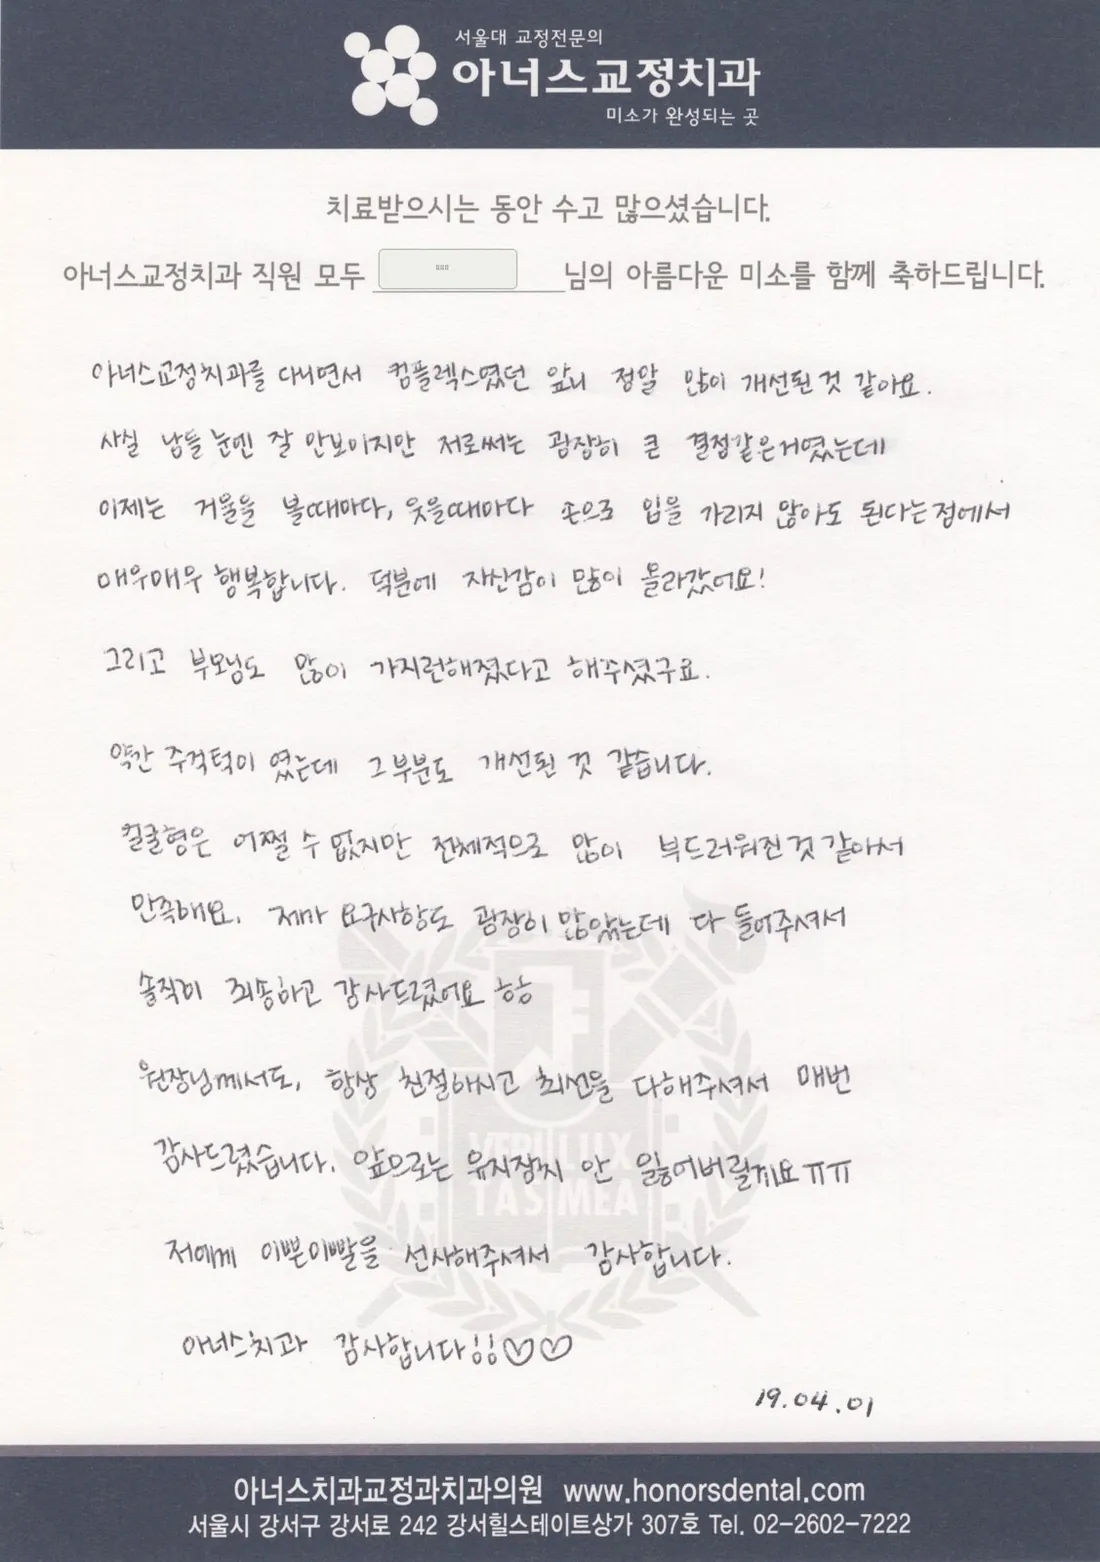 서울대 교정전문의
아너스교정치과
미소가 완성되는 곳
치료받으시는 동안 수고 많으셨습니다.
아너스교정치과 직원 모두 님의 아름다운 미소를 함께 축하드립니다.
아너스교정치과를 다니면서 컴플렉스였던 앞니 정말 많이 개선된것 같아요.
사실 남들 눈엔 잘 안보이지만 저로써는 굉장히 큰 결점같은거였는데
이제는 거울을 볼때마다, 웃을때마다 손으로 입을 가리지 않아도 된다는점에서
매우매우 행복합니다. 덕분에 자신감이 많이 올라갔어요!
그리고 부모님도 많이 가지런해졌다고 해주셨구요.
약간 주걱턱이 였는데 그부분도 개선된 것 같습니다.
얼굴형은 어쩔 수 없지만 전체적으로 많이 부드러워진것 같아서
만족해요. 제가 요구사항도 굉장히 많았는데 다 들어주셔서
솔직히 죄송하고 감사드렸어요 ㅎㅎ
원장님께서도, 항상 친절하시고 최선을 다해주셔서 매번
감사드렸습니다. 앞으로는 유지장치 안 잃어버릴게요 ㅠㅠ
저에게 이쁜이빨을 선사해주셔서 감사합니다.
아너스치과 감사합니다!!♡♡
19.04.01
VERI LUX
TAS MEA
아너스치과교정과치과의원 www.honorsdental.com
서울시 강서구 강서로 242 강서힐스테이트상가 307호 Tel. 02-2602-7222